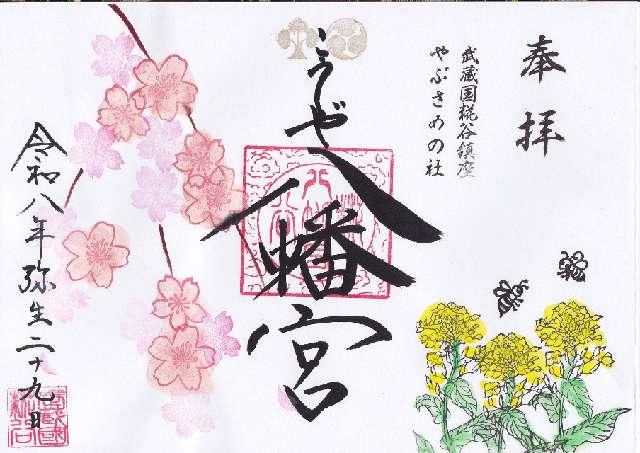 奉拝
武蔵国糀谷鎮座
やぶさめの社
うぜ八幡宮
令和八年弥生二十九日